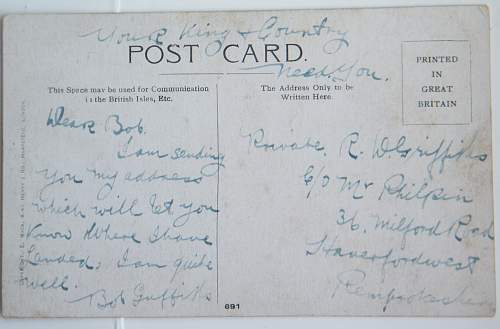 Your King & Country
POST CARD.
Need You.
This Space may be used for Communication
in the British Isles, Etc.
The Address Only to be
Written Here.
PRINTED
IN
GREAT
BRITAIN
Dear Bob.
I am sending
you my address
which will let you
know where I have
Landed, I am quite
well.
Bob Griffiths
Private. R. W Griffiths
C/O Mr Philpin
36. Milford Road
Haverfordwest
Pembrokeshire
691